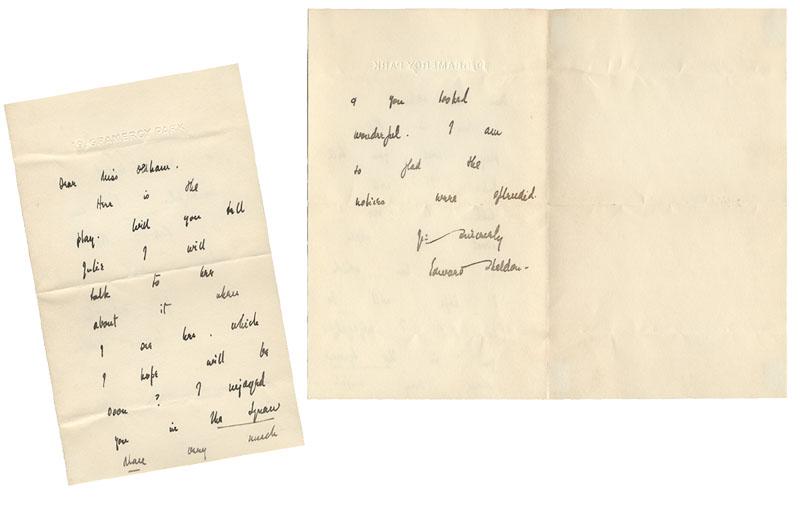 19 GRAMERCY PARK
Dear Miss Oldham.
Here is the
play. Will you tell
Julie I will
talk to her
about it when
I see her. which
I hope will be
soon? I enjoyed
you in The Squaw
Man very much
19 GRAMERCY PARK
& you looked
wonderful. I am
so glad the
notices were splendid.
Yrs sincerely
Edward Sheldon-